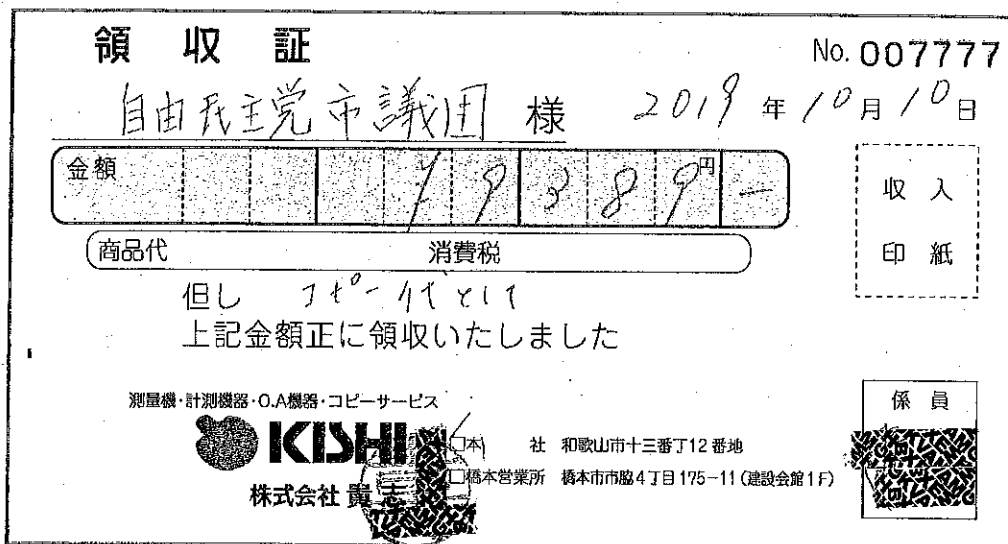 領収証
No. 007777
自由民主党市議団 様
2019年10月10日
金額 19389円-
収入
印紙
商品代 消費税
但し コピー代として
上記金額正に領収いたしました
測量機・計測機器・O.A機器・コピーサービス
KISHI
株式会社 貴志
□本 社 和歌山市十三番丁12番地
□橋本営業所 橋本市市脇4丁目175-11(建設会館1F)
係員